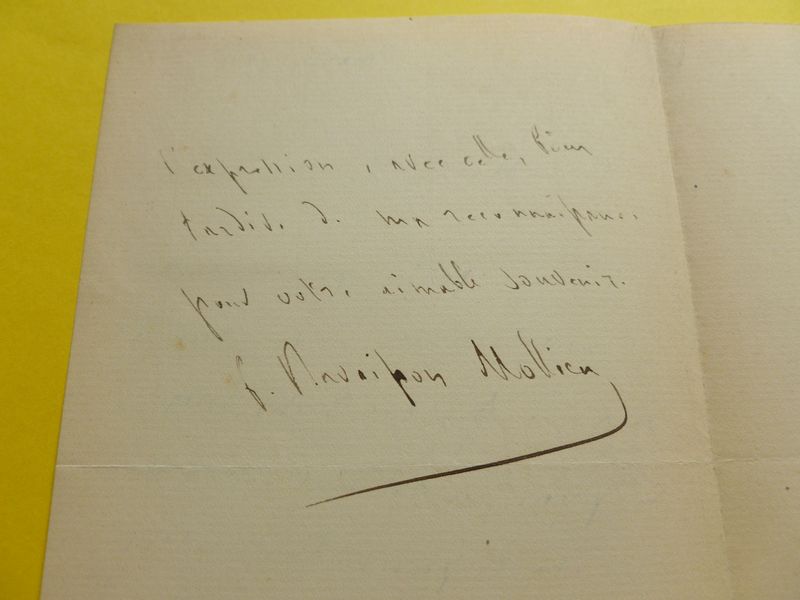 l'expression, avec celle, bien
tardive de ma reconnaissance
pour votre aimable souvenir.
f. Ravaisson Mollien